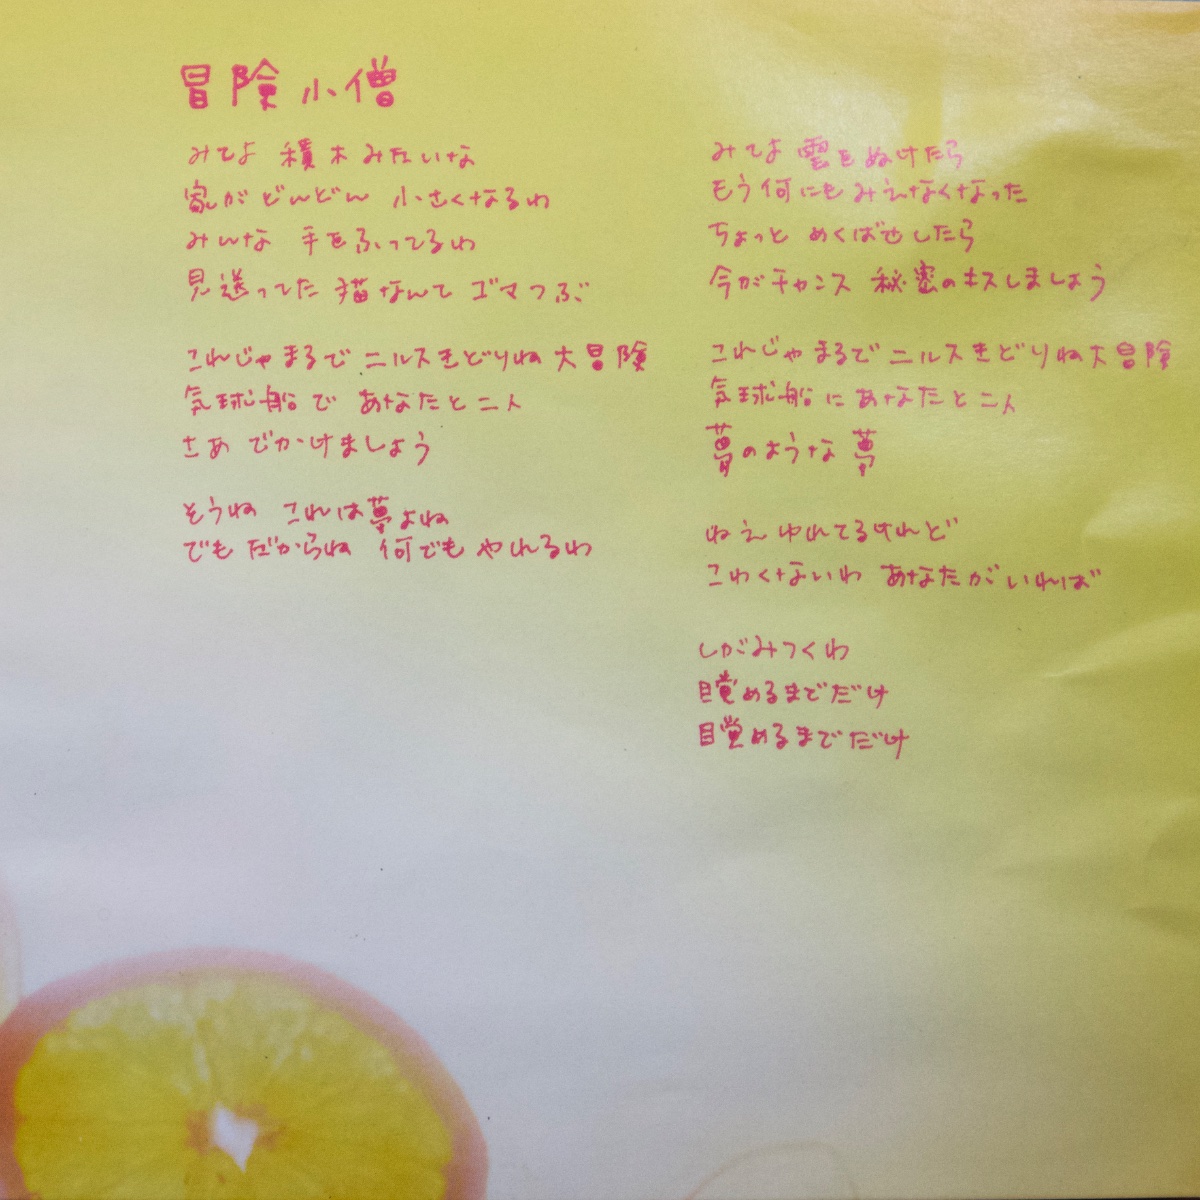 冒険小僧
みてよ 積木みたいな
家が どんどん 小さくなるわ
みんな 手をふってるわ
見送ってた 猫なんて ゴマつぶ
これじゃ まるで ニルスきどりね 大冒険
気球船で あなたと二人
さあ でかけましょう
そうね これは夢よね
でも だからね 何でも やれるわ
みてよ 雲をぬけたら
もう何にも みえなくなった
ちょっと めくばせしたら
今がチャンス 秘密のキスしましょう
これじゃ まるで ニルスきどりね 大冒険
気球船に あなたと二人
夢のような 夢
ねえ ゆれてるけれど
こわくないわ あなたがいれば
しがみつくわ
目覚めるまでだけ
目覚めるまでだけ